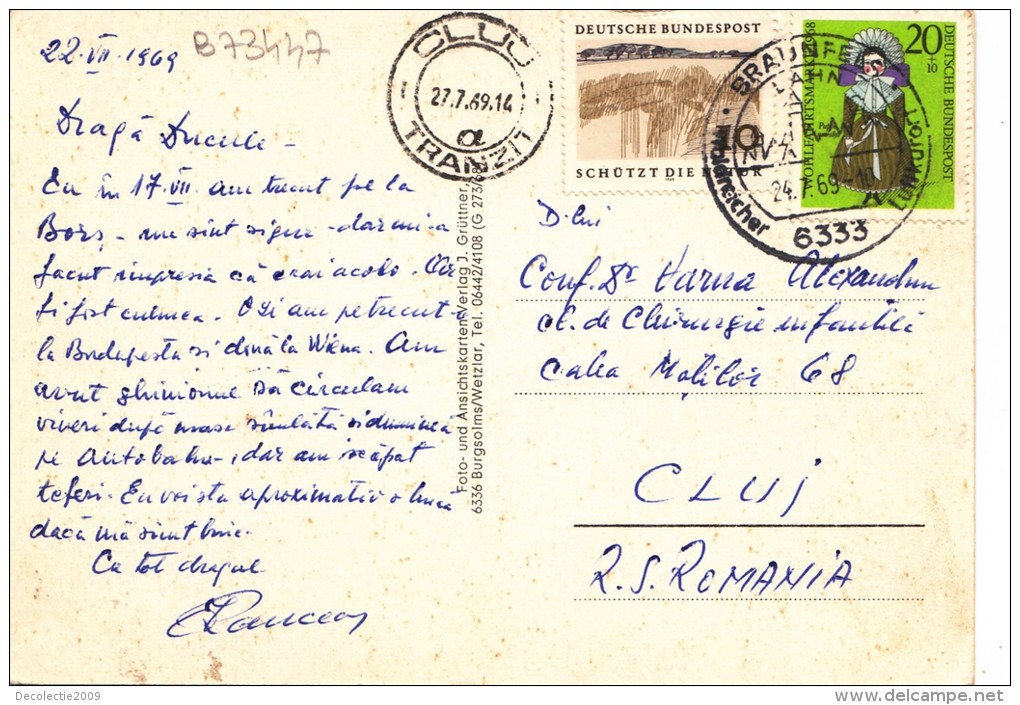 22.VII.1969
B73447
Dragă Ducule -
Eu în 17.VII am trecut pe la
Borș - nu sînt sigur - dar mi-a
facut impresia că erai acolo.
fi fost culmea. O zi am petrecut-
la Budapesta si două la Wiena. Am
avut ghinionul să circulam
vineri după masa sîmbătă si duminică
pe Autobahn -, dar am scăpat
teferi. Eu voi sta aproximativ o lună
dacă mă simt bine.
Cu tot dragul
CLUJ
27.7.69.14
α
TRANZIT
Foto- und Ansichtskarten-Verlag J. Grüttner,
6336 Burgsolms/Wetzlar, Tel. 06442/4108 (G 273/68
DEUTSCHE BUNDESPOST
10
SCHÜTZT DIE NATUR
1969
20
+10
DEUTSCHE BUNDESPOST
WOHLFAHRTSMARKE 1968
BRAUNFELS
LAHN
24.7.69-18
waldreicher
Luftkurort
6333
D-lui
Conf. Dr Varna Alexandru
cl. de Chirurgie infantilă
Calea Moților 68
CLUJ
R.S. ROMANIA
Decolectie2009
www.delcampe.net